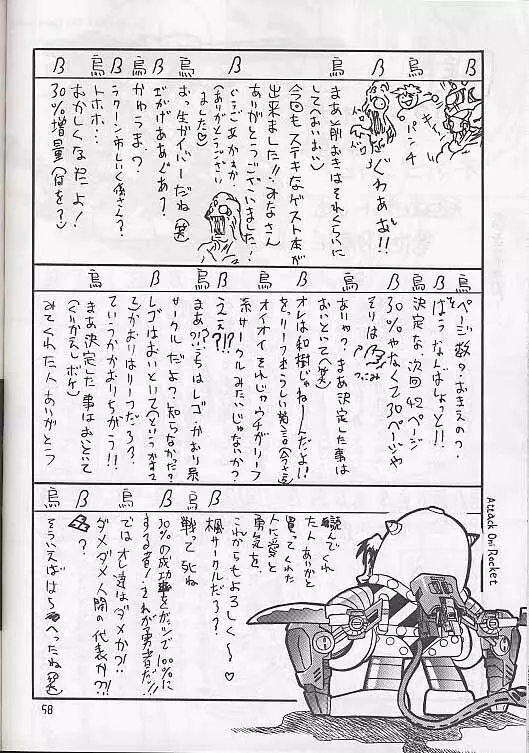 ß
烏
ß
烏
ß
烏
ß
ß
烏
ß
烏
パンチ
ぐわあぁ!!
まあ、前おきはそれくらいに
しておいおい♡
今回もステキなゲスト本が
出来ました!!みなさん
ありがとうございました!
(ありがとうござい
ました♡)
おっ生ガイバーだね(笑)
エがげああぐあ?
かゆうま?
ラクーン市しいく係さん?
トホホ…
おかしくなったよ!
30%増量(何を?)
ページ数?おきえの?
ばそうなんでしょっと!!
決定な、次回42ページ
30%やなくて30ページや
そりは
つっこみ
ありゃ?まあ決定した事は
おいといて(笑)
オレは和樹じゃねーんだよ!!
オイオイそれじゃウチがリーフ
系サークルみたいじゃないか?
ええ?!??
まあ?!?うちはレゴかおり系
サークルだよっ知らなかった?
レゴはおいといて
かおりはリーフだろ?
ていうかかおりちがう!!
まあ決定した事はおいといて
(くりかえしボケ)
みてくれた人ありがとう
読んでくれ
た人ありがと
買ってくれた
人に愛と
勇気を
これからもよろしく〜♡
楓サークルだろ?
戦って死ね
30%の成功率をガッツで100%に
する者!それが勇者だ!!
ではオレ達はダメか?!
ダメダメ人間の代表か?!
?
そういえばはらへったね(笑)
Attack On Rocket
58